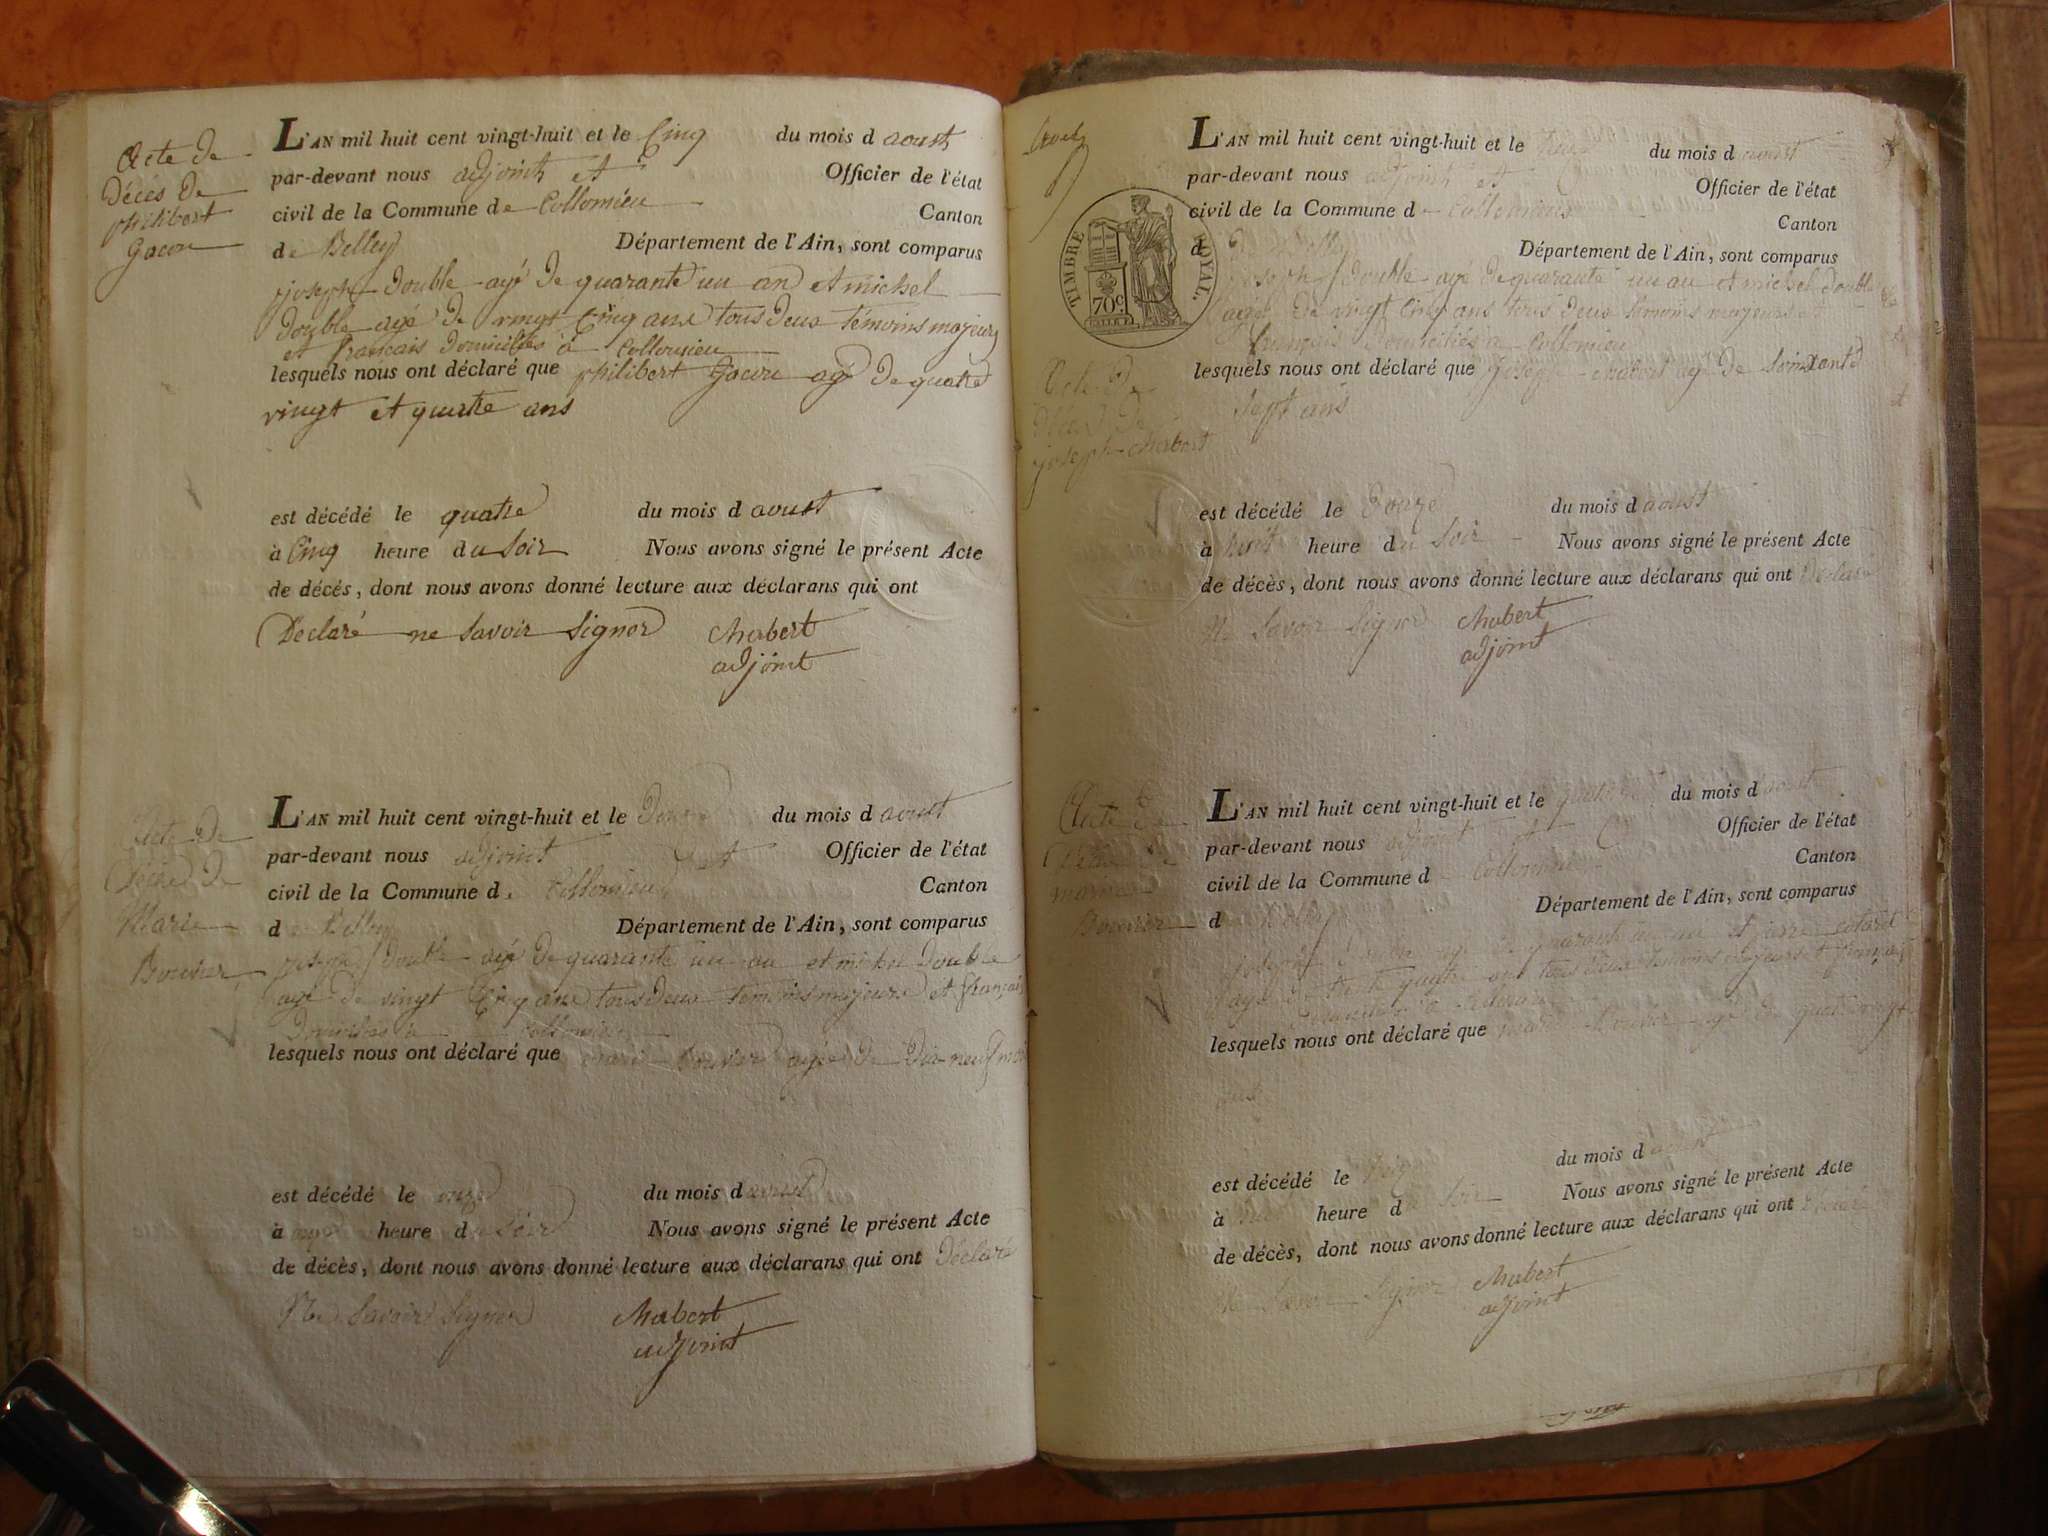 Acte de
Décés de
philibert
Gacon
L'AN mil huit cent vingt-huit et le Cinq du mois d aoust
par-devant nous adjoint et Officier de l'état
civil de la Commune de Collomieu Canton
de Belley Département de l'Ain, sont comparus
joseph double agé de quarante un an et michel
double age de vingt Cinq ans tous deux témoins majeurs
et francais domicilies a Collomieu
lesquels nous ont déclaré que philibert Gacon agé de quatre
vingt et quatre ans
est décédé le quatre du mois d aoust
à Cinq heure du soir Nous avons signé le présent Acte
de décés, dont nous avons donné lecture aux déclarans qui ont
Déclaré ne Savoir Signer Chabert
adjoint
Acte de
Décés de
Marie
Bouvier
L'AN mil huit cent vingt-huit et le Douze du mois d aoust
par-devant nous adjoint et Officier de l'état
civil de la Commune d. Collomieu Canton
de Belley Département de l'Ain, sont comparus
joseph double agé de quarante un an et michel double
agé de vingt Cinq ans tous deux temoins majeurs et francais
domicilies a Collomieu
lesquels nous ont déclaré que marie bouvier agée de dix neuf
est décédé le onze du mois d aoust
à heure du soir Nous avons signé le présent Acte
de décès, dont nous avons donné lecture aux déclarans qui ont Déclaré
Ne Savoir Signer Chabert
adjoint
TIMBRE ROYAL.
70c.
Acte de
Décés de
joseph Chabert
L'AN mil huit cent vingt-huit et le du mois d aoust
par-devant nous adjoint et Officier de l'état
civil de la Commune de Collomieu Canton
d Belley Département de l'Ain, sont comparus
joseph double age de quarante un an et michel double
agé de vingt Cinq ans tous deux temoins majeurs et
francais domiciliés a Collomieu
lesquels nous ont déclaré que joseph chabert agé de Soixante
Sept ans
est décédé le Douze du mois d aoust
à huit heure du Soir Nous avons signé le présent Acte
de décès, dont nous avons donné lecture aux déclarans qui ont Déclaré
Ne Savoir Signer Chabert
adjoint
Acte de
Décés de
Bouvier
L'AN mil huit cent vingt-huit et le du mois d aoust
par-devant nous adjoint et Officier de l'état
civil de la Commune de Collomieu Canton
d Belley Département de l'Ain, sont comparus
joseph quarante un an et
agé de quatre ans tous deux temoins majeurs et français
a Collomieu
lesquels nous ont déclaré que Bouvier agé de quatre vingt
ans
est décédé le du mois d aoust
à heure du Soir Nous avons signé le présent Acte
de décès, dont nous avons donné lecture aux déclarans qui ont Déclaré
Ne Savoir Signer Chabert
adjoint